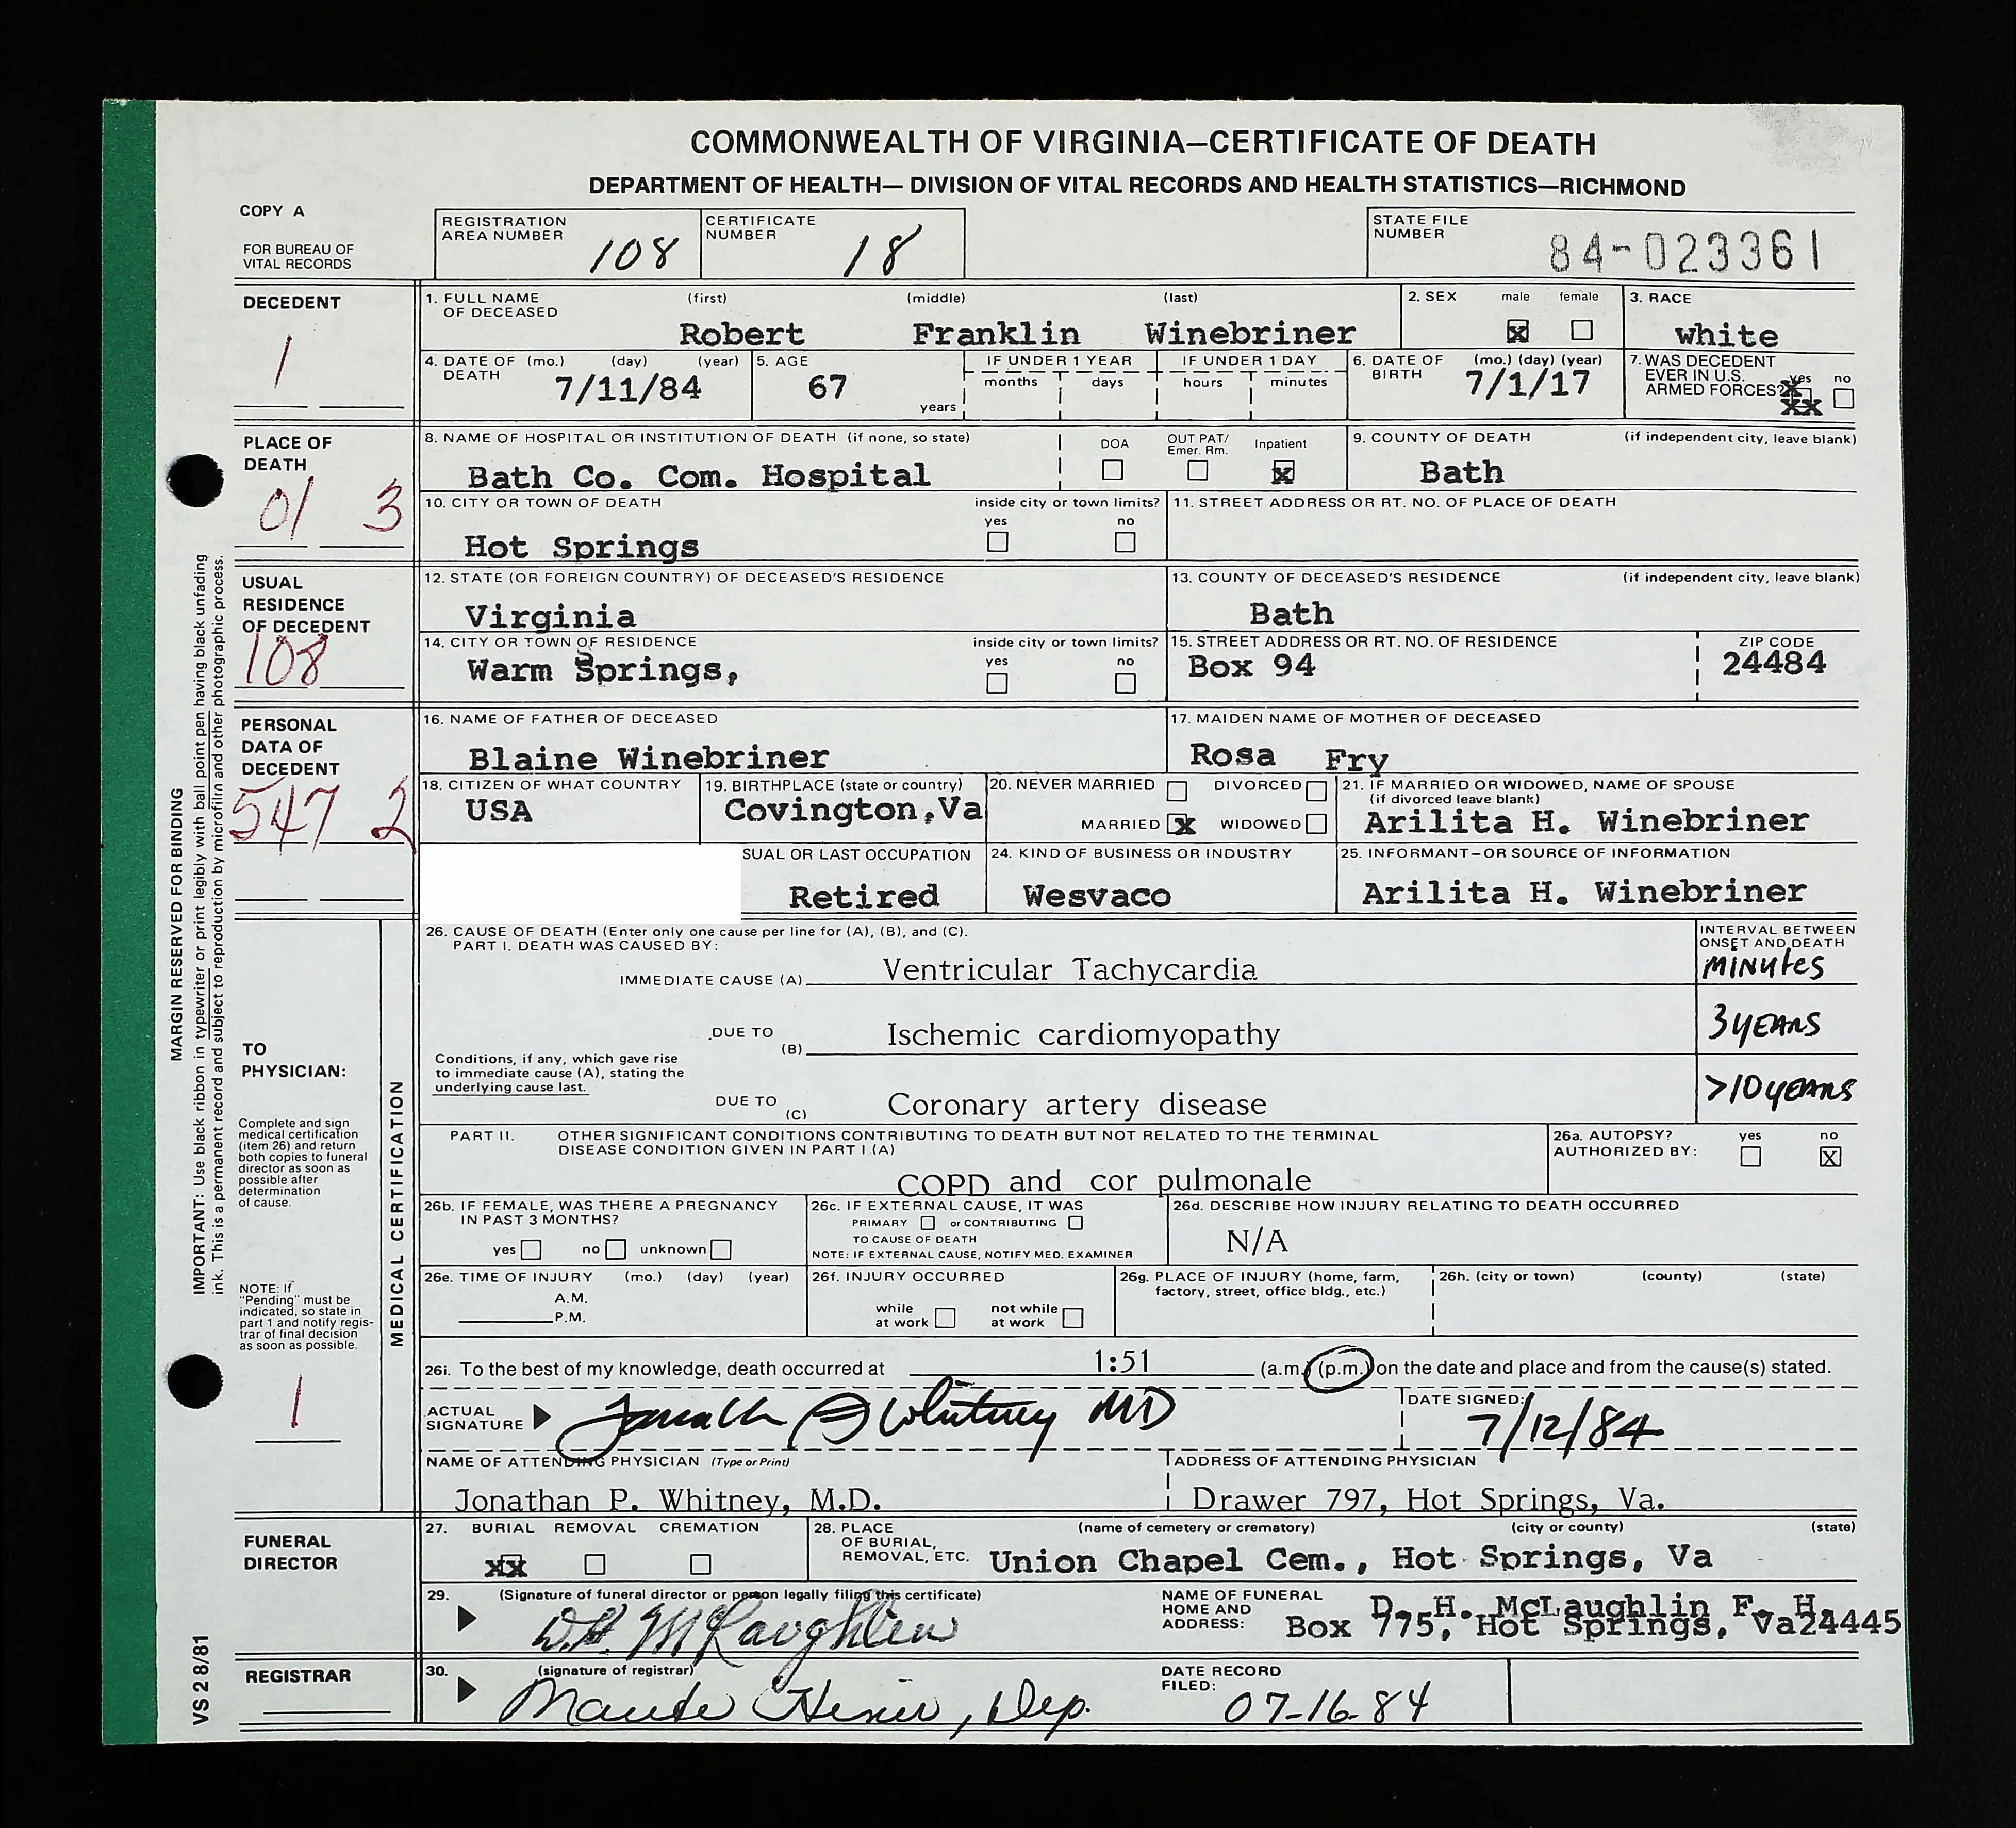 COMMONWEALTH OF VIRGINIA—CERTIFICATE OF DEATH
DEPARTMENT OF HEALTH— DIVISION OF VITAL RECORDS AND HEALTH STATISTICS—RICHMOND
COPY A
FOR BUREAU OF
VITAL RECORDS
REGISTRATION
AREA NUMBER 108
CERTIFICATE
NUMBER 18
STATE FILE
NUMBER 84-023361
DECEDENT
1
1. FULL NAME (first) (middle) (last)
OF DECEASED
Robert Franklin Winebriner
2. SEX male female
x
3. RACE
white
4. DATE OF (mo.) (day) (year)
DEATH
7/11/84
5. AGE
67
years
IF UNDER 1 YEAR
months days
IF UNDER 1 DAY
hours minutes
6. DATE OF (mo.) (day) (year)
BIRTH
7/1/17
7. WAS DECEDENT
EVER IN U.S.
ARMED FORCES? yes no
X
XX
PLACE OF
DEATH
01 3
8. NAME OF HOSPITAL OR INSTITUTION OF DEATH (if none, so state)
Bath Co. Com. Hospital
DOA
OUT PAT/
Emer. Rm.
Inpatient
x
9. COUNTY OF DEATH (if independent city, leave blank)
Bath
10. CITY OR TOWN OF DEATH inside city or town limits?
yes no
Hot Springs
11. STREET ADDRESS OR RT. NO. OF PLACE OF DEATH
USUAL
RESIDENCE
OF DECEDENT
108
12. STATE (OR FOREIGN COUNTRY) OF DECEASED'S RESIDENCE
Virginia
13. COUNTY OF DECEASED'S RESIDENCE (if independent city, leave blank)
Bath
14. CITY OR TOWN OF RESIDENCE inside city or town limits?
yes no
Warm Springs,
15. STREET ADDRESS OR RT. NO. OF RESIDENCE
Box 94
ZIP CODE
24484
PERSONAL
DATA OF
DECEDENT
547 2
16. NAME OF FATHER OF DECEASED
Blaine Winebriner
17. MAIDEN NAME OF MOTHER OF DECEASED
Rosa Fry
18. CITIZEN OF WHAT COUNTRY
USA
19. BIRTHPLACE (state or country)
Covington,Va
20. NEVER MARRIED DIVORCED
MARRIED x WIDOWED
21. IF MARRIED OR WIDOWED, NAME OF SPOUSE
(if divorced leave blank)
Arilita H. Winebriner
SUAL OR LAST OCCUPATION
Retired
24. KIND OF BUSINESS OR INDUSTRY
Wesvaco
25. INFORMANT—OR SOURCE OF INFORMATION
Arilita H. Winebriner
MARGIN RESERVED FOR BINDING
IMPORTANT: Use black ribbon in typewriter or print legibly with ball point pen having black unfading
ink. This is a permanent record and subject to reproduction by microfilm and other photographic process.
TO
PHYSICIAN:
Complete and sign
medical certification
(item 26) and return
both copies to funeral
director as soon as
possible after
determination
of cause.
NOTE: If
"Pending" must be
indicated, so state in
part 1 and notify regis-
trar of final decision
as soon as possible.
1
MEDICAL CERTIFICATION
26. CAUSE OF DEATH (Enter only one cause per line for (A), (B), and (C).
PART I. DEATH WAS CAUSED BY:
INTERVAL BETWEEN
ONSET AND DEATH
IMMEDIATE CAUSE (A) Ventricular Tachycardia
MINUTES
DUE TO
(B) Ischemic cardiomyopathy
3 YEARS
Conditions, if any, which gave rise
to immediate cause (A), stating the
underlying cause last.
DUE TO
(C) Coronary artery disease
>10 YEARS
PART II. OTHER SIGNIFICANT CONDITIONS CONTRIBUTING TO DEATH BUT NOT RELATED TO THE TERMINAL
DISEASE CONDITION GIVEN IN PART I (A)
COPD and cor pulmonale
26a. AUTOPSY? yes no
AUTHORIZED BY: X
26b. IF FEMALE, WAS THERE A PREGNANCY
IN PAST 3 MONTHS?
yes no unknown
26c. IF EXTERNAL CAUSE, IT WAS
PRIMARY or CONTRIBUTING
TO CAUSE OF DEATH
NOTE: IF EXTERNAL CAUSE, NOTIFY MED. EXAMINER
26d. DESCRIBE HOW INJURY RELATING TO DEATH OCCURRED
N/A
26e. TIME OF INJURY (mo.) (day) (year)
A.M.
P.M.
26f. INJURY OCCURRED
while
at work
not while
at work
26g. PLACE OF INJURY (home, farm,
factory, street, office bldg., etc.)
26h. (city or town) (county) (state)
26i. To the best of my knowledge, death occurred at 1:51 (a.m.) (p.m.) on the date and place and from the cause(s) stated.
ACTUAL
SIGNATURE Jonathan P Whitney MD
DATE SIGNED:
7/12/84
NAME OF ATTENDING PHYSICIAN (Type or Print)
Jonathan P. Whitney, M.D.
ADDRESS OF ATTENDING PHYSICIAN
Drawer 797, Hot Springs, Va.
FUNERAL
DIRECTOR
27. BURIAL REMOVAL CREMATION
xx
28. PLACE (name of cemetery or crematory) (city or county) (state)
OF BURIAL,
REMOVAL, ETC.
Union Chapel Cem., Hot Springs, Va
29. (Signature of funeral director or person legally filing this certificate)
D.H. McLaughlin
NAME OF FUNERAL
HOME AND
ADDRESS:
D. H. McLaughlin F. H.
Box 775, Hot Springs, Va24445
REGISTRAR
30. (signature of registrar)
Maude Hiner, Dep.
DATE RECORD
FILED:
07-16-84
VS 2 8/81